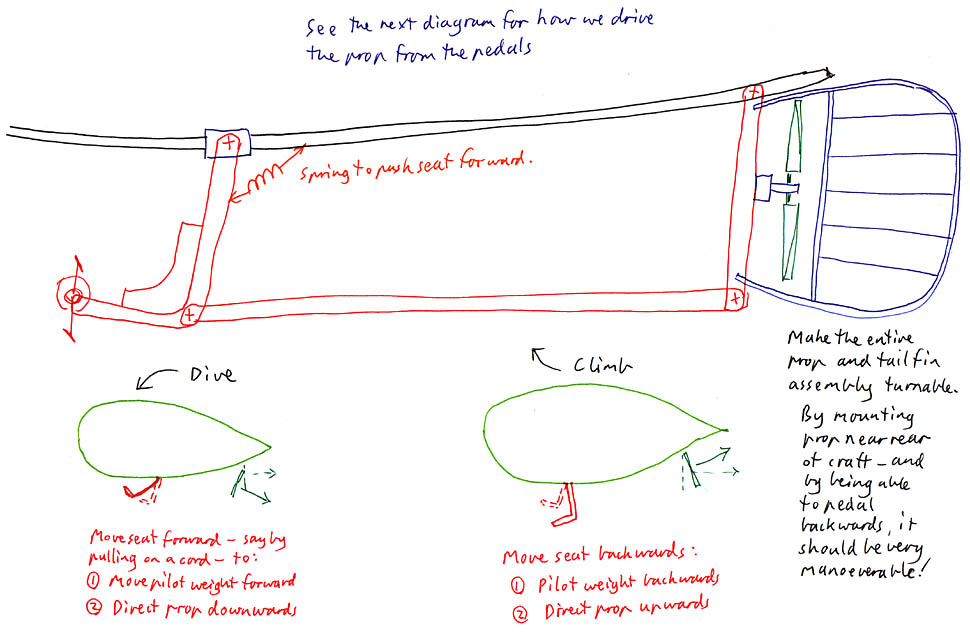 See the next diagram for how we drive
the prop from the pedals
Spring to push seat forward.
Make the entire
prop and tail fin
assembly turnable.
By mounting
prop near rear
of craft – and
by being able
to pedal
backwards, it
should be very
manoeverable!
Dive
Climb
Move seat forward – say by
pulling on a cord – to:
① Move pilot weight forward
② Direct prop downwards
Move seat backwards:
① Pilot weight backwards
② Direct prop upwards